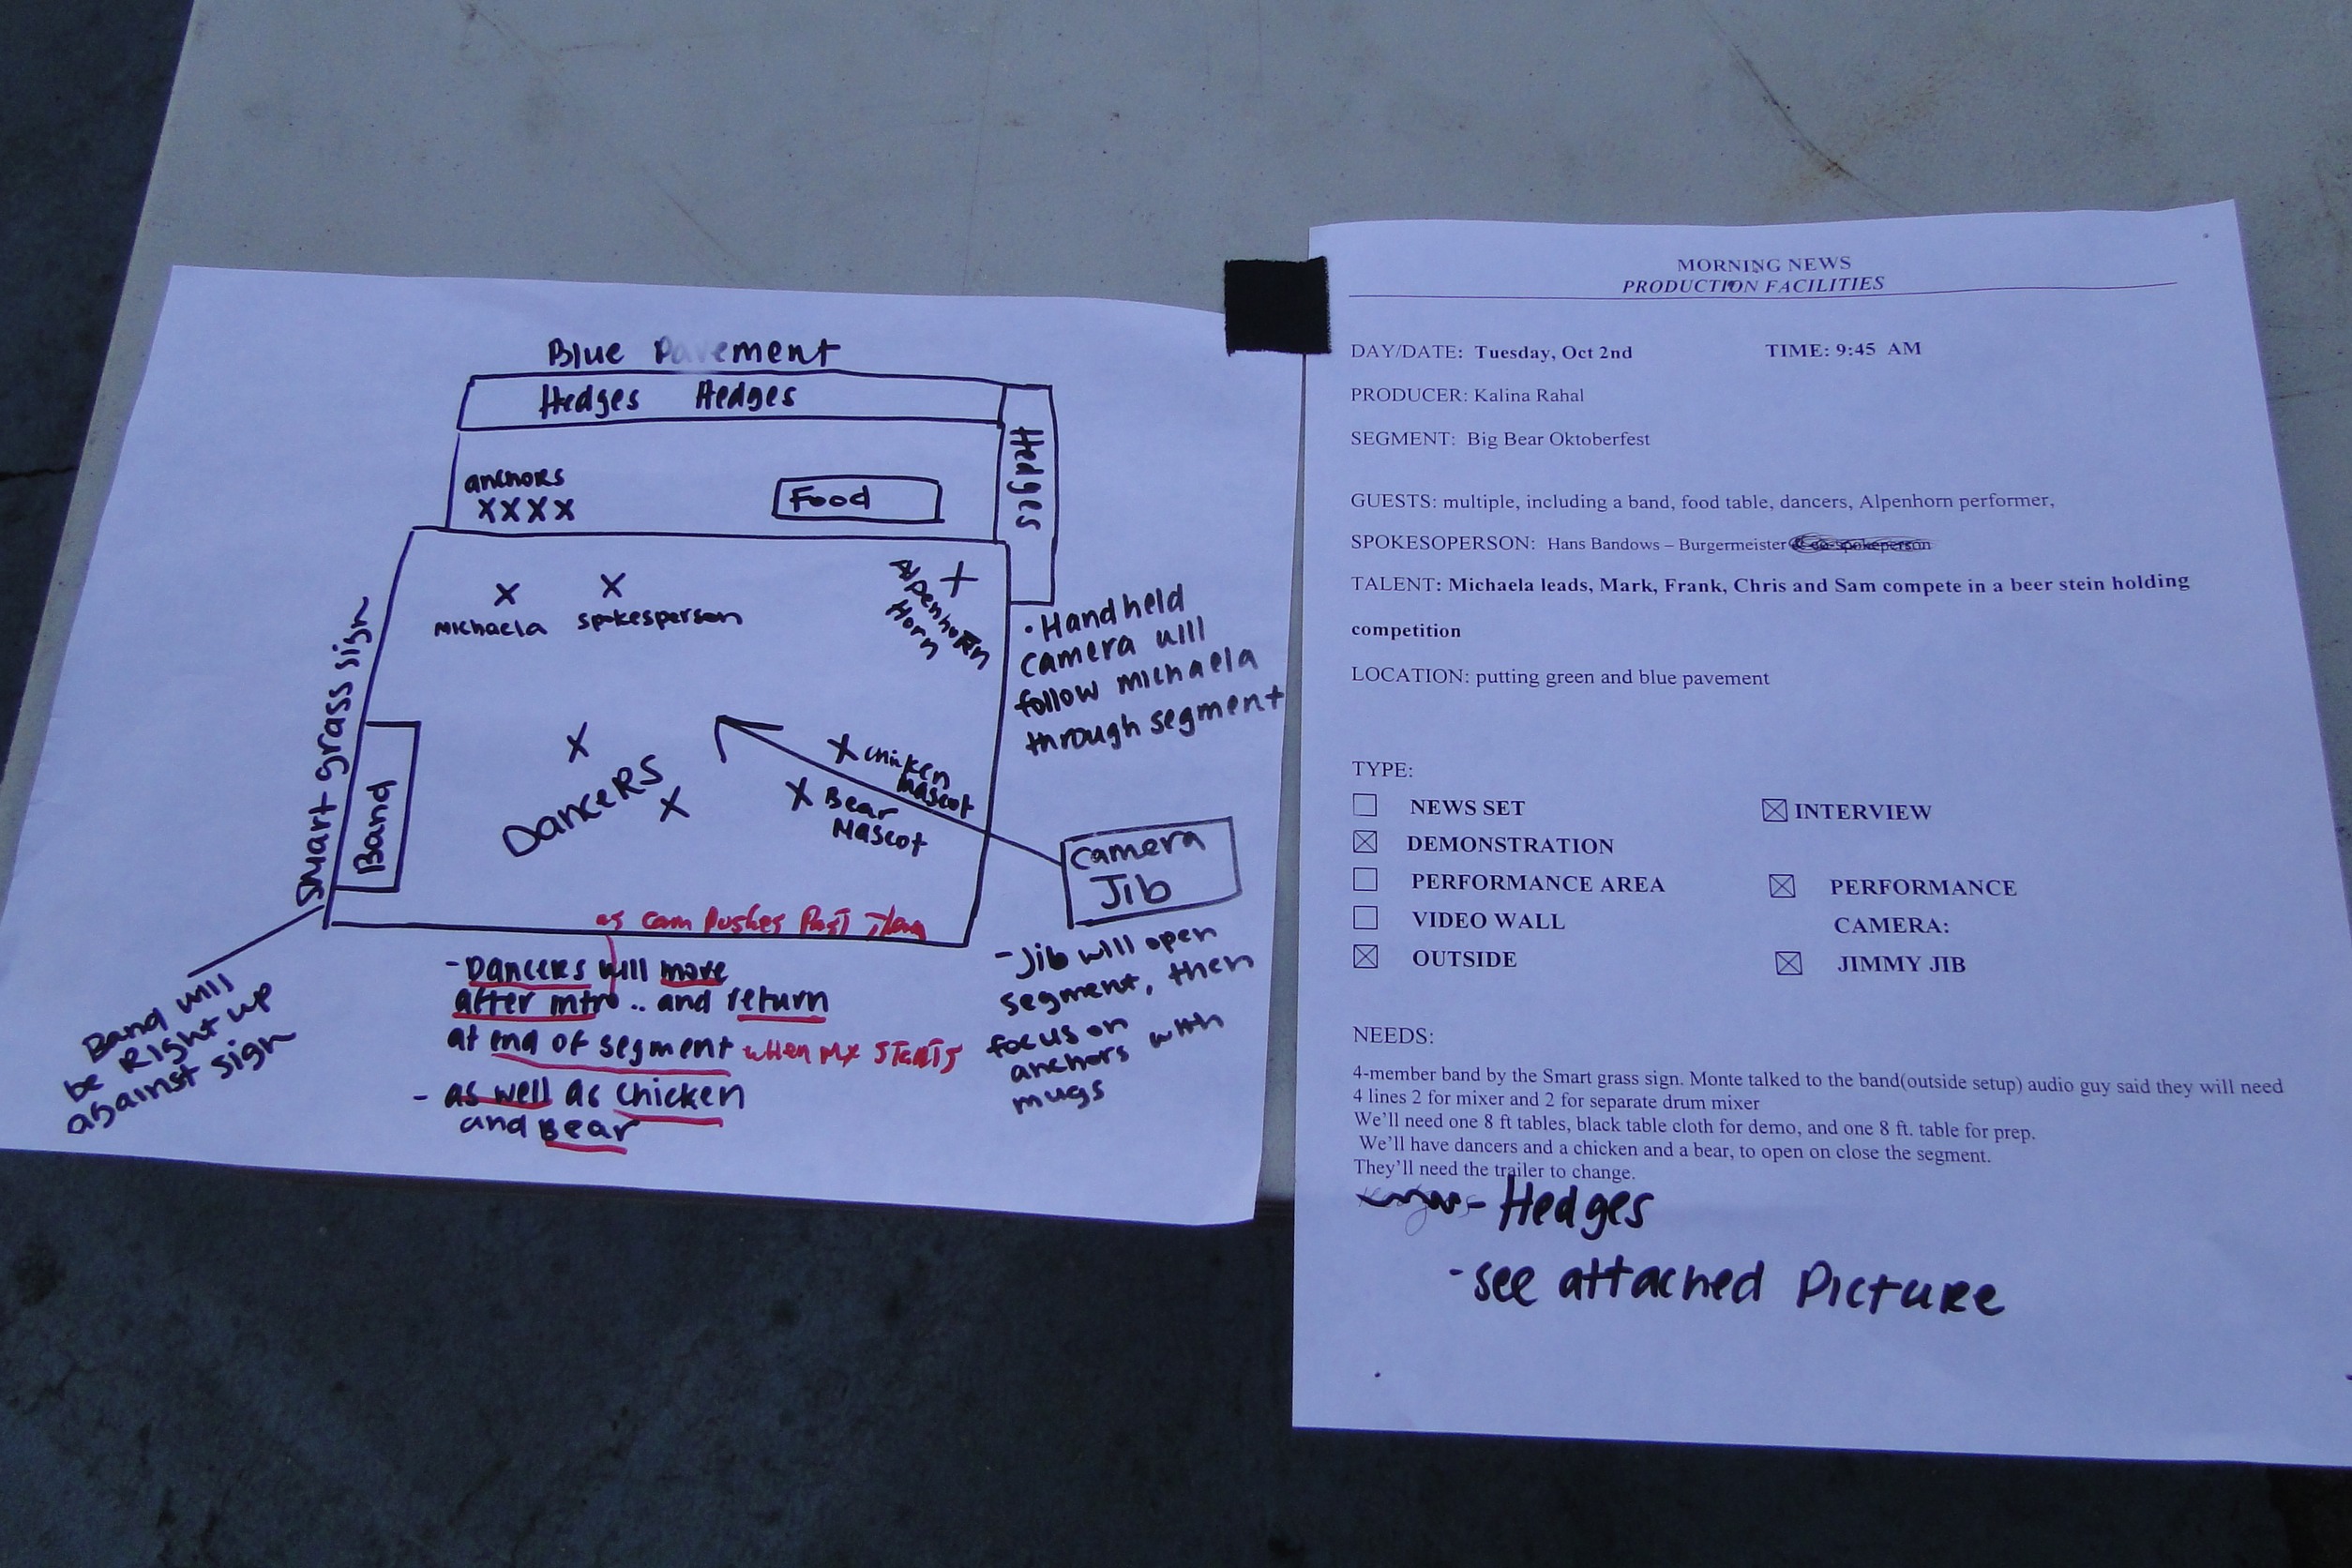 Blue Pavement
Hedges Hedges
Hedges
anchors
XXXX
Food
X X
Michaela spokesperson
X
Alpenhorn
Horn
Smart grass sign
Band
X
DanceRS
X
X chicken
mascot
X Bear
Mascot
· Handheld
camera will
follow michaela
through segment
camera
Jib
as cam pushes Past
- Dancers will move
after intro .. and return
at end of segment when MX STARTS
- as well as chicken
and Bear
- Jib will open
segment, then
focus on
anchors with
mugs
Band will
be Right up
against sign
MORNING NEWS
PRODUCTION FACILITIES
DAY/DATE: Tuesday, Oct 2nd TIME: 9:45 AM
PRODUCER: Kalina Rahal
SEGMENT: Big Bear Oktoberfest
GUESTS: multiple, including a band, food table, dancers, Alpenhorn performer,
SPOKESOPERSON: Hans Bandows – Burgermeister & co-spokeperson
TALENT: Michaela leads, Mark, Frank, Chris and Sam compete in a beer stein holding
competition
LOCATION: putting green and blue pavement
TYPE:
NEWS SET
INTERVIEW
DEMONSTRATION
PERFORMANCE AREA
PERFORMANCE
VIDEO WALL
CAMERA:
OUTSIDE
JIMMY JIB
NEEDS:
4-member band by the Smart grass sign. Monte talked to the band(outside setup) audio guy said they will need
4 lines 2 for mixer and 2 for separate drum mixer
We'll need one 8 ft tables, black table cloth for demo, and one 8 ft. table for prep.
We'll have dancers and a chicken and a bear, to open on close the segment.
They'll need the trailer to change.
- Hedges
- see attached Picture